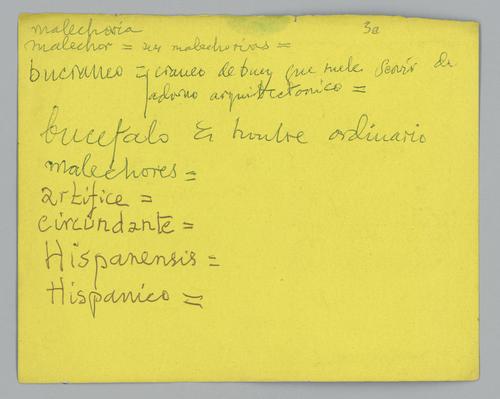 malechoria 3a
malechor = malechorias =
bucraneo = craneo de buey que suele servir de
adorno arquitectonico =
bucefalo es hombre ordinario
malechores =
artifice =
circundante =
Hispanensis =
Hispanico =